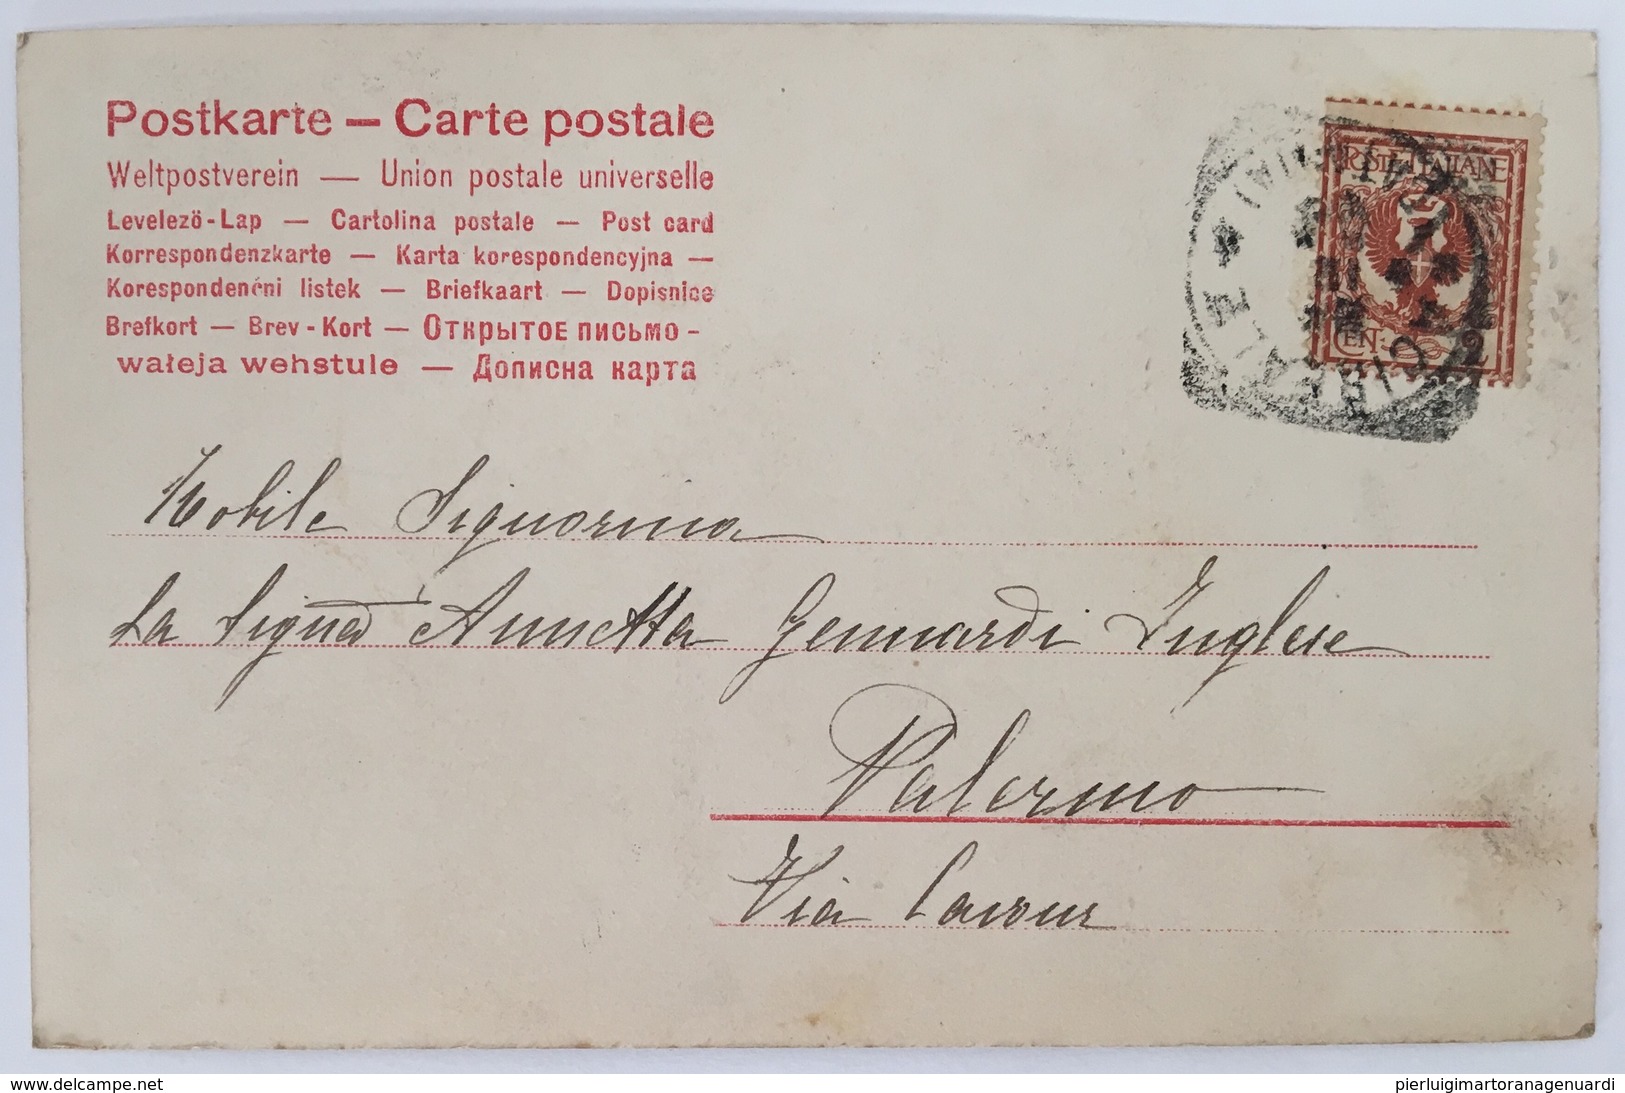 Postkarte — Carte postale
Weltpostverein — Union postale universelle
Levelezö-Lap — Cartolina postale — Post card
Korrespondenzkarte — Karta korespondencyjna —
Korespondenčni listek — Briefkaart — Dopisnice
Brefkort — Brev-Kort — Открытое письмо -
wałeja wehstule — Дописна карта
POSTE ITALIANE
CEN: 2
Nobile Signorina
La Signa Annetta Gennardi Inglese
Palermo
Via Cavour
delcampe.net
pierluigimartoranagenuardi